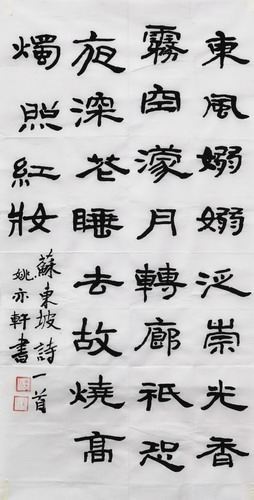 東風嫋嫋泛崇光香
霧空濛月轉廊祇恐
夜深花睡去故燒高
燭照紅妝
蘇東坡詩一首
姚亦軒書